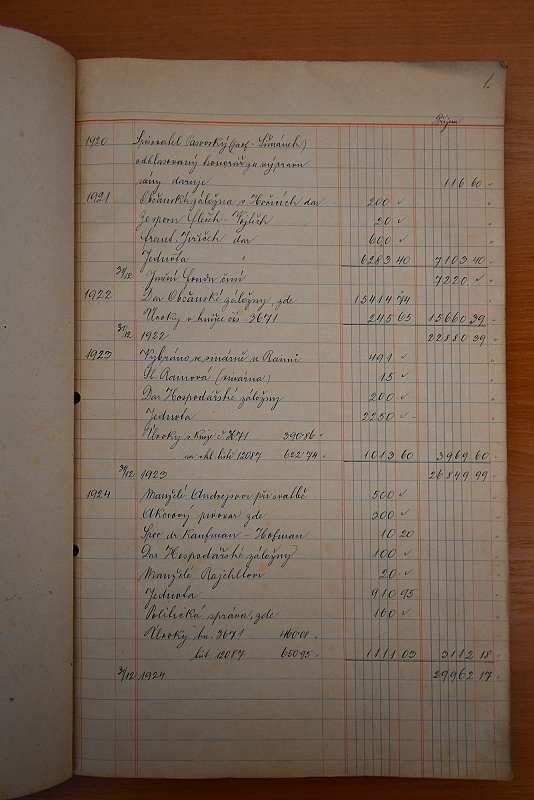 1.
Příjem
1920 Spisovatel Vasovský (prof. Šimánek)
odhlasovaný honorář za výpravu
sány daruje 116 60
1921 Občanská záložna v Hořicích dar 200
20
Frant. Jiříček dar 600
Jednota " 6283 40 7103 40
31/12 Jmění fondu činí 7220
1922 Dar Občanské záložny zde 15414 74
Úroky v knížce čís. 3671 245 65 15660 39
31/12 1922 22880 39
1923 Vybráno v u Ranni 491
Sl. Ramová 15
Dar Hospodářské záložny 200
Jednota 2250
Úroky z kníž. č. 3671 390.86
vkl. listu 12087 622.74 1013 60 3969 60
31/12 1923 26849 99
1924 Manželé Andrejsovi při svatbě 500
Akciový pivovar zde 300
Spor dr Kaufman - Hofman 10 20
Dar Hospodářské záložny 100
Manželé Rajchltovi 20
Jednota 910 95
Politická správa zde 160
Úroky kn. 3671 460.08
list 12087 650.95 1111 03 3112 18
31/12 1924 29962 17